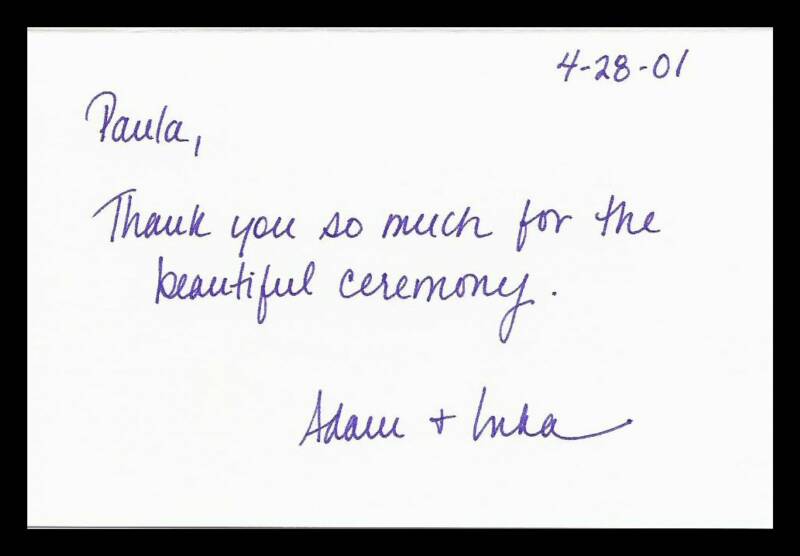 4-28-01
Paula,
Thank you so much for the
beautiful ceremony.
Adam +